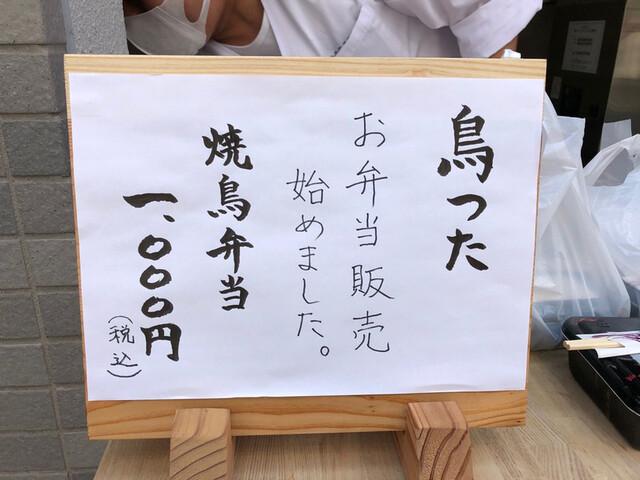 鳥つた
お弁当販売
始めました。
焼鳥弁当
一、〇〇〇円
(税込)